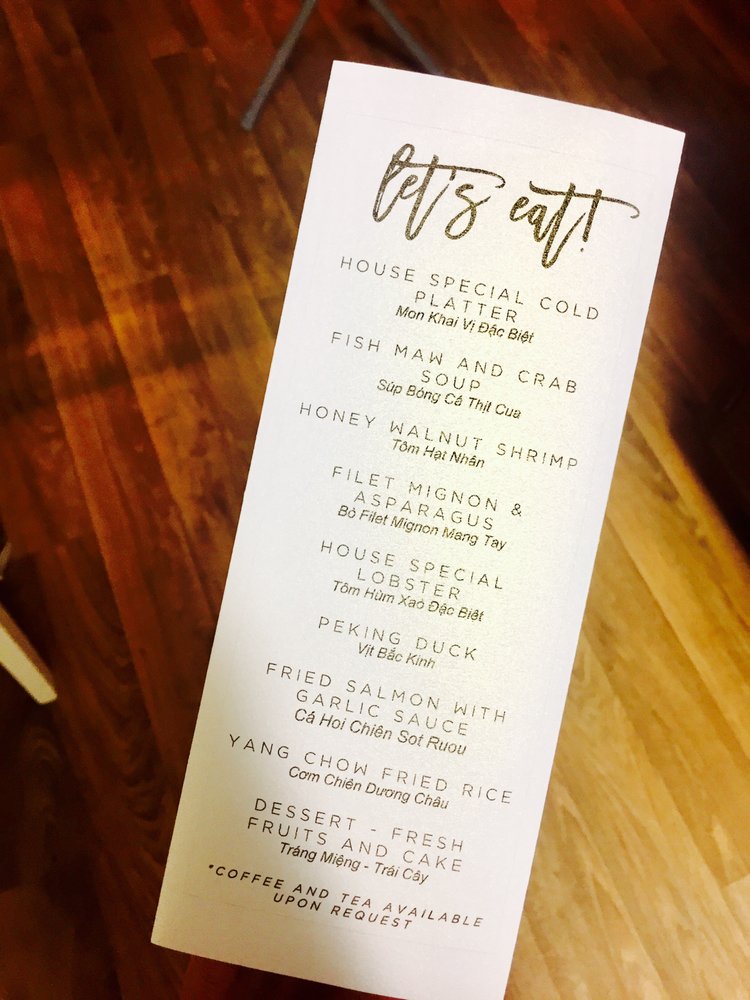 let's eat!
HOUSE SPECIAL COLD
PLATTER
Mon Khai Vị Đặc Biệt
FISH MAW AND CRAB
SOUP
Súp Bóng Cá Thịt Cua
HONEY WALNUT SHRIMP
Tôm Hạt Nhân
FILET MIGNON &
ASPARAGUS
Bò Filet Mignon Mang Tay
HOUSE SPECIAL
LOBSTER
Tôm Hùm Xaò Đặc Biệt
PEKING DUCK
Vịt Bắc Kinh
FRIED SALMON WITH
GARLIC SAUCE
Cá Hoi Chiên Sot Ruou
YANG CHOW FRIED RICE
Cơm Chiên Dương Châu
DESSERT - FRESH
FRUITS AND CAKE
Tráng Miệng - Trái Cây
*COFFEE AND TEA AVAILABLE
UPON REQUEST